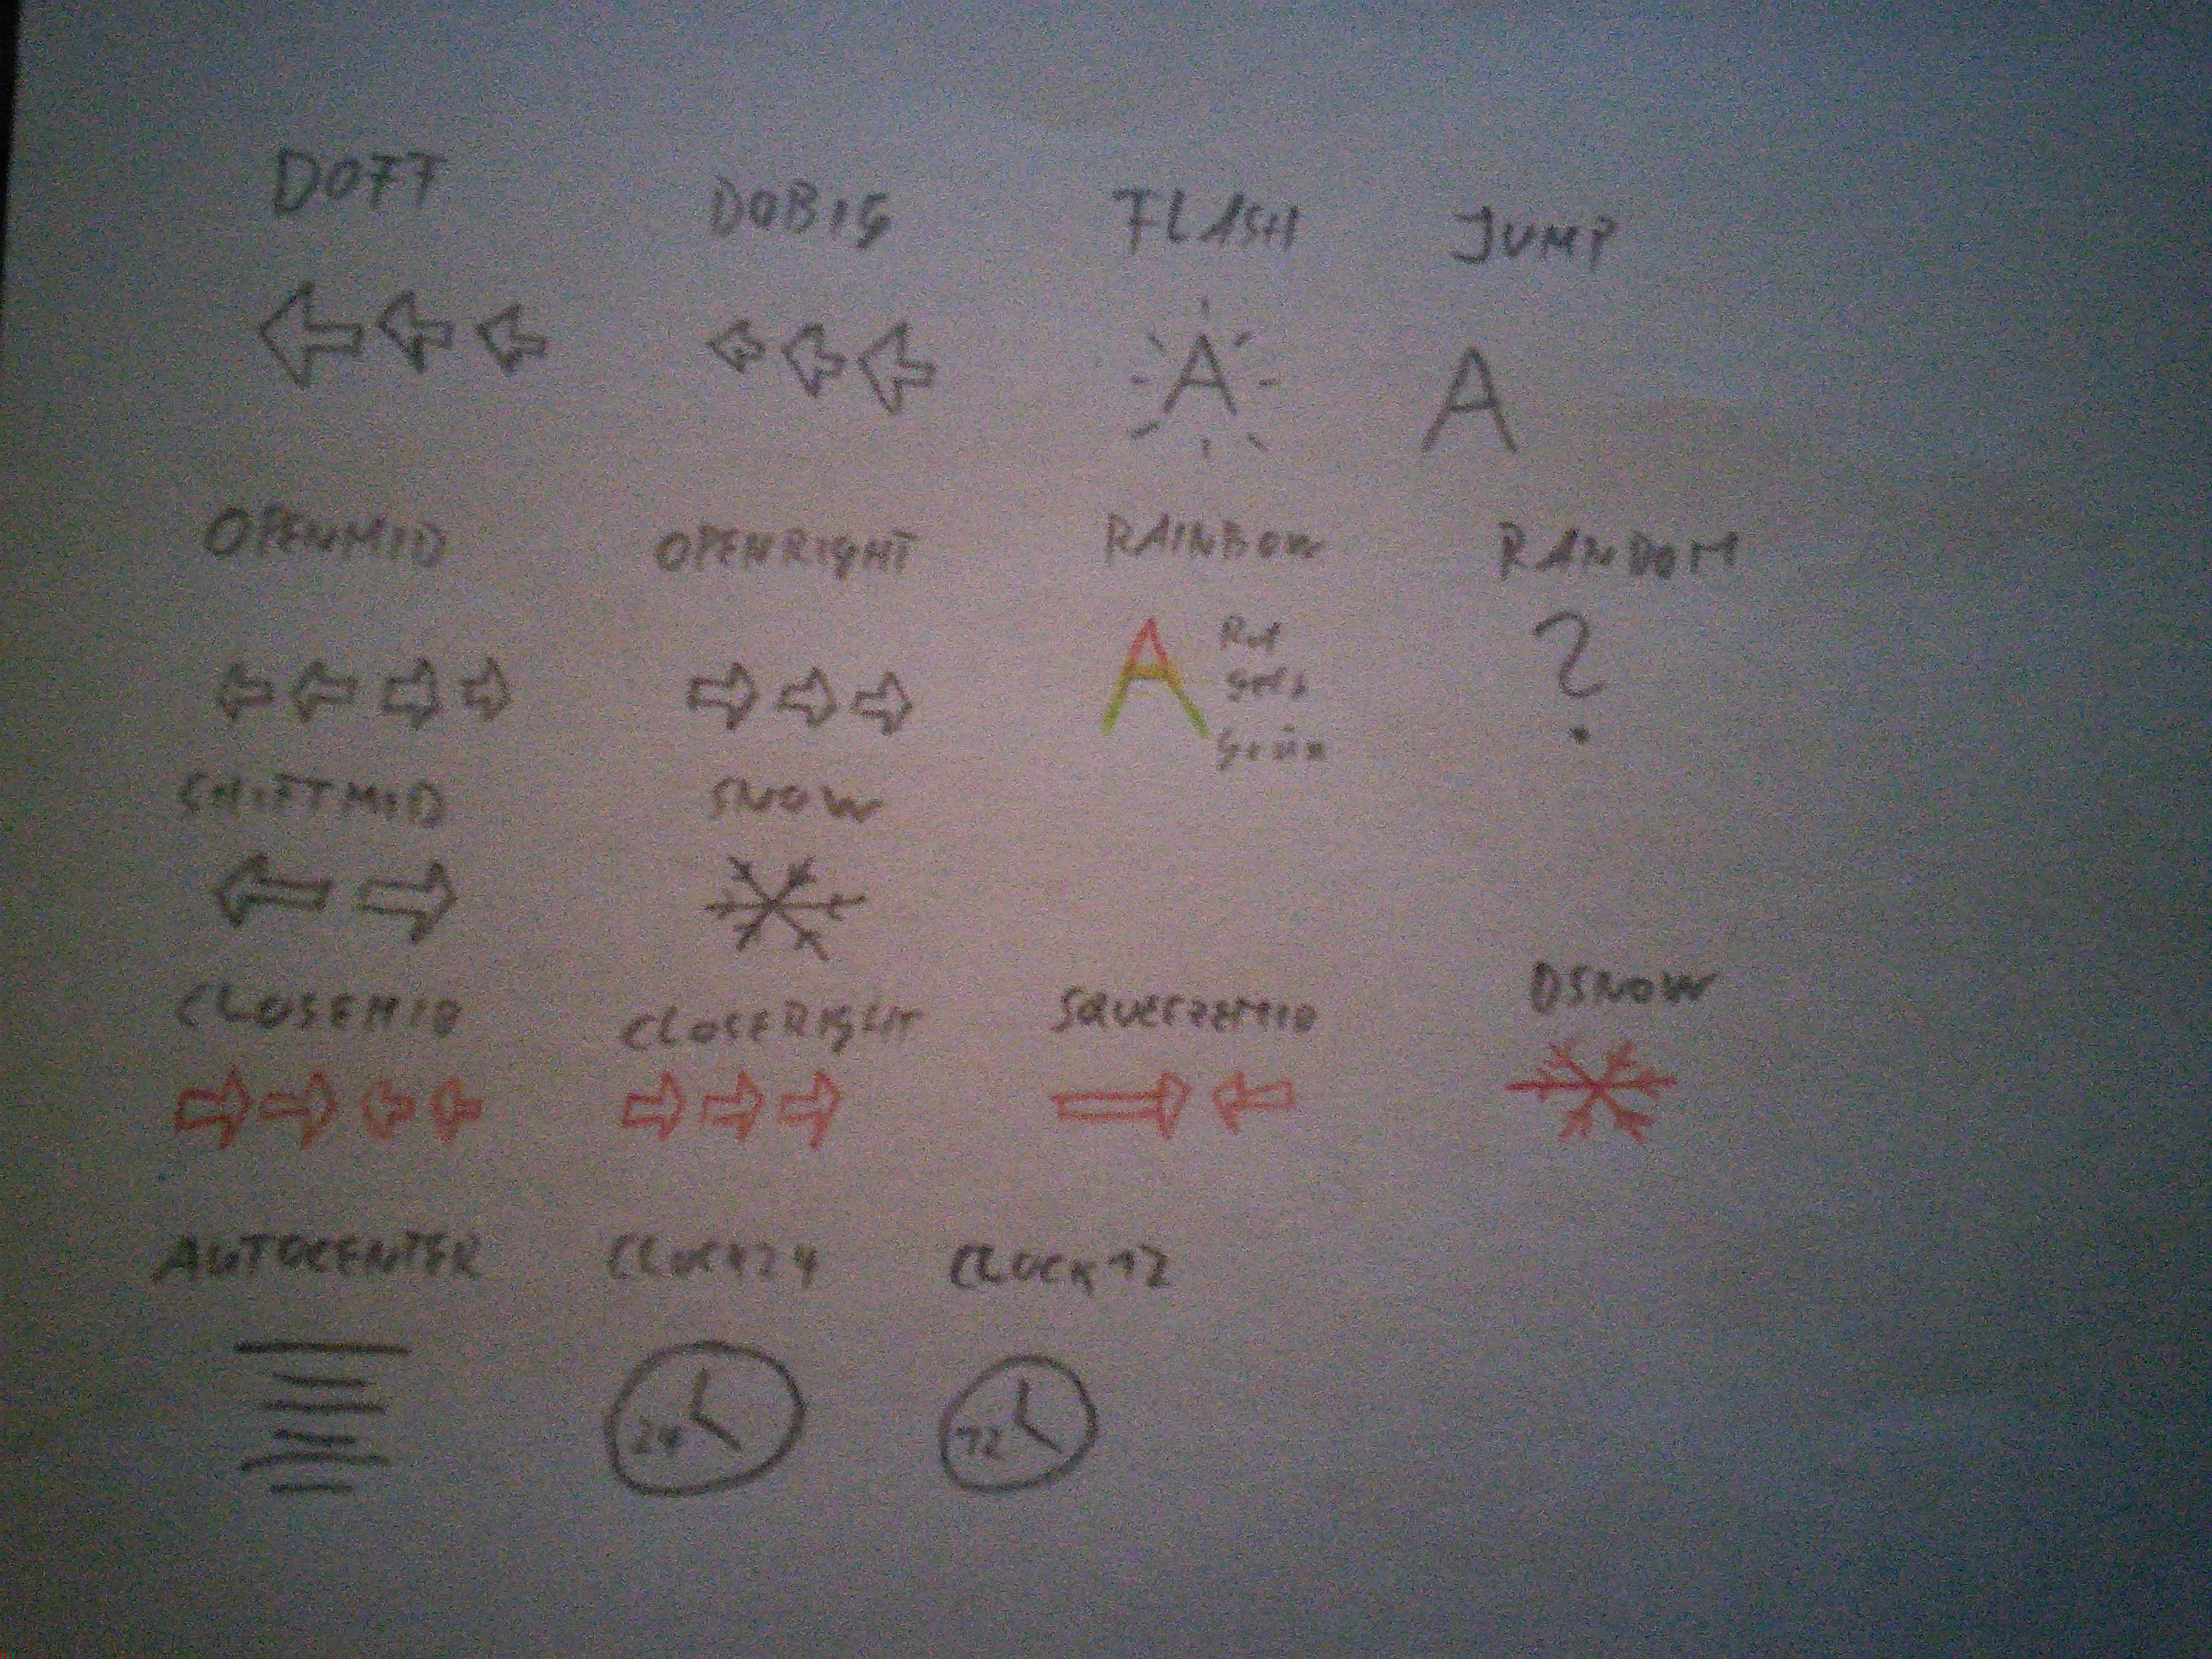 DOFF DOBIG FLASH JUMP
A A
OPENMID OPENRIGHT RAINBOW RANDOM
A Rot ?
Gelb
Grün
SHIFTMID SNOW
CLOSEMID CLOSERIGHT SQUEEZEMID DSNOW
AUTOCENTER CLOCK24 CLOCK12
24 12